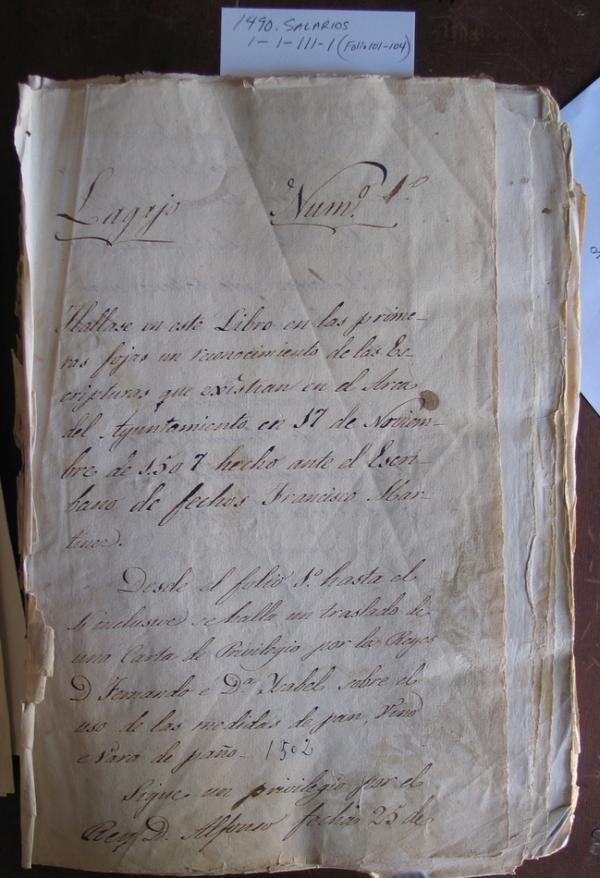 1490. SALARIOS
1-1-111-1 (Folio 101-104)
Legajo Numº. 1º
Hallase en este Libro en las prime-
ras fojas un reconocimiento de las Es-
cripturas que existian en el Arca
del Ayuntamiento en 17 de Noviem-
bre de 1507 hecho ante el Escri-
bano de fechos Francisco Mar-
tinez.
Desde el folio 1º. hasta el
4 inclusive se halla un traslado de
una Carta de Privilegio por los Reyes
D Fernando e Dª Ysabel sobre el
uso de las medidas de pan, Vino
e Vara de paño- 1502
Sigue un privilegio por el
Rey D. Alfonso fecha 25 de